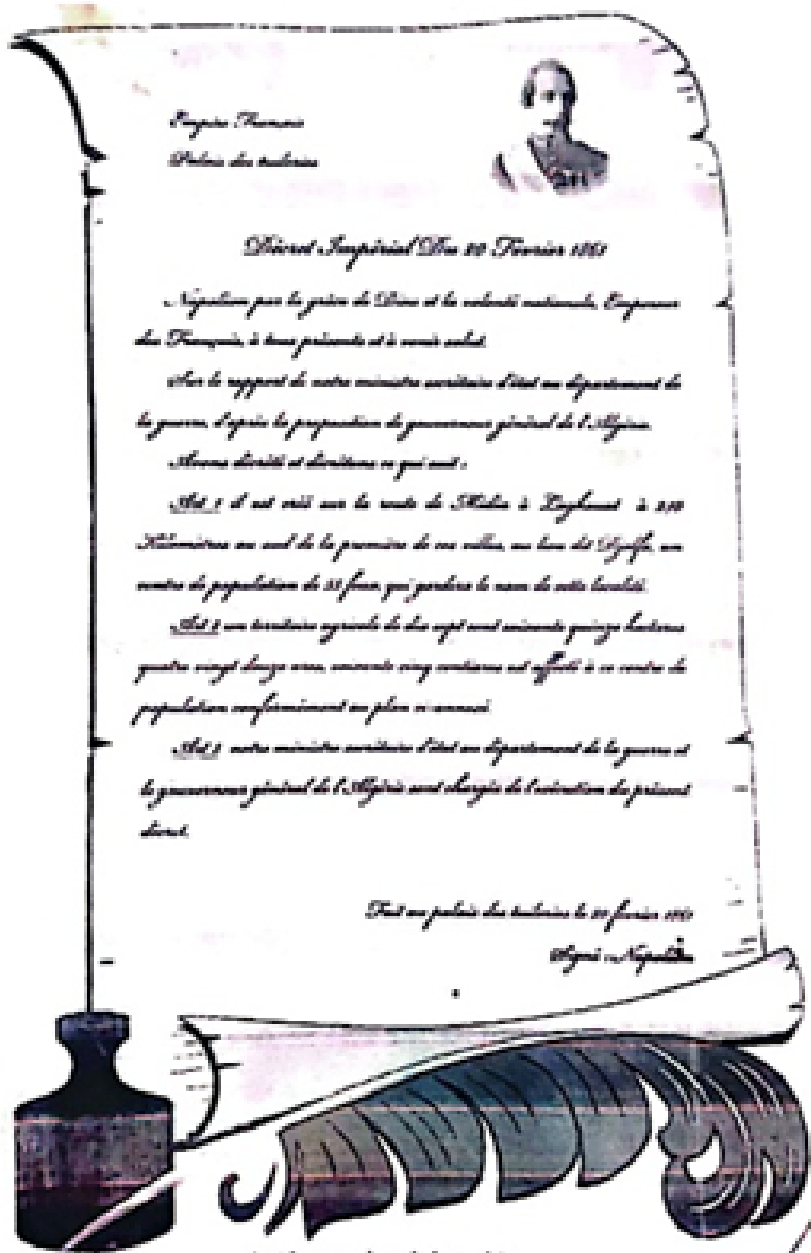 Empire Français
Palais des tuileries
Décret Impérial Du 20 Février 1861
Napoléon par la grâce de Dieu et la volonté nationale, Empereur
des Français, à tous présents et à venir salut.
Sur le rapport de notre ministre secrétaire d'état au département de
la guerre, d'après la proposition de gouverneur général de l'Algérie.
Avons décrété et décrétons ce qui suit :
Art 1 il est créé sur la route de Médéa à Laghouat à
Kilomètres au sud de la première de ces villes, au lieu dit Djelfa, un
centre de population de 55 feux qui gardera le nom de cette localité.
Art 2 un territoire agricole de dix sept cent soixante quinze hectares
quatre vingt douze ares, soixante cinq centiares est affecté à ce centre de
population conformément au plan ci-annexé.
Art 3 notre ministre secrétaire d'état au département de la guerre et
le gouverneur général de l'Algérie sont chargés de l'exécution du présent
décret.
Fait au palais des tuileries le 20 février 1861
Signé : Napoléon